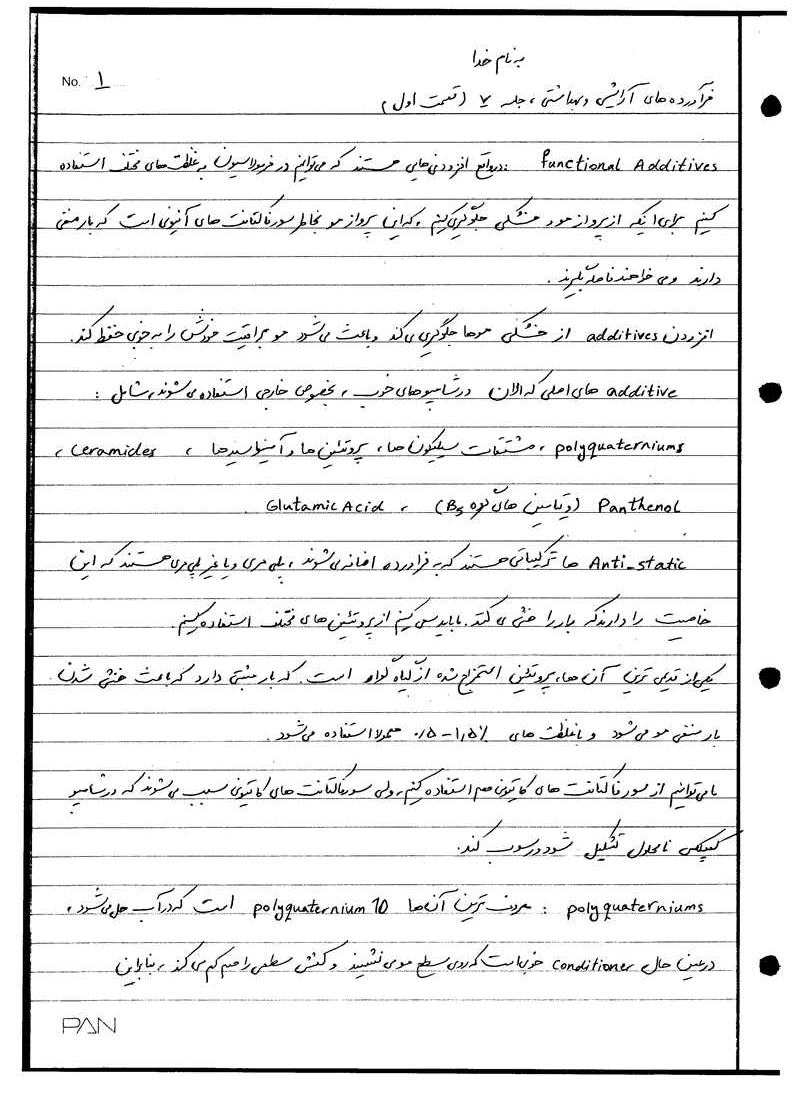 به نام خدا
No. 1
فرآورده های آرایشی و بهداشتی، جلسه ۷ (قسمت اول)
Functional Additives : درواقع افزودنی هایی هستند که می توانیم در فرمولاسیون به غلظت های مختلف استفاده
کنیم برای اینکه از پرواز مو و خشکی جلوگیری کنیم، که این پرواز مو بخاطر سورفاکتانت های آنیونی است که بار منفی
دارند و می خواهند فاصله بگیرند.
افزودن additives از خشکی موها جلوگیری می کند و باعث می شود مو براقیت خودش را به خوبی حفظ کند.
additive های اصلی که الان در شامپوهای خوب، بخصوص خارجی استفاده می شوند، شامل :
polyquaterniums ، مشتقات سیلیکون ها، پروتئین ها و آمینواسیدها ، Ceramides ،
Panthenol (ویتامین های گروه B5) ، Glutamic Acid .
Anti-static ها ترکیباتی هستند که به فرآورده اضافه می شوند، پلی مری و یا غیر پلی مری هستند که این
خاصیت را دارند که بار را خنثی می کند. ما باید سعی کنیم از پروتئین های مختلف استفاده کنیم.
یکی از قدیمی ترین آن ها، پروتئین استخراج شده از گیاه است. که بار مثبتی دارد که باعث خنثی شدن
بار منفی مو می شود و با غلظت های ۰/۵ - ۱/۵٪ معمولا استفاده می شود.
ما می توانیم از سورفاکتانت های کاتیونی هم استفاده کنیم، ولی سورفاکتانت های کاتیونی سبب می شوند که در شامپو
کمپلکس نامحلول تشکیل شود و رسوب کند.
polyquaterniums : معروف ترین آن ها polyquaternium 10 است که در آب حل می شود،
در عین حال conditioner خوبی است که روی سطح موی نشیند و کشش سطحی را هم کم می کند، بنابراین
PAN